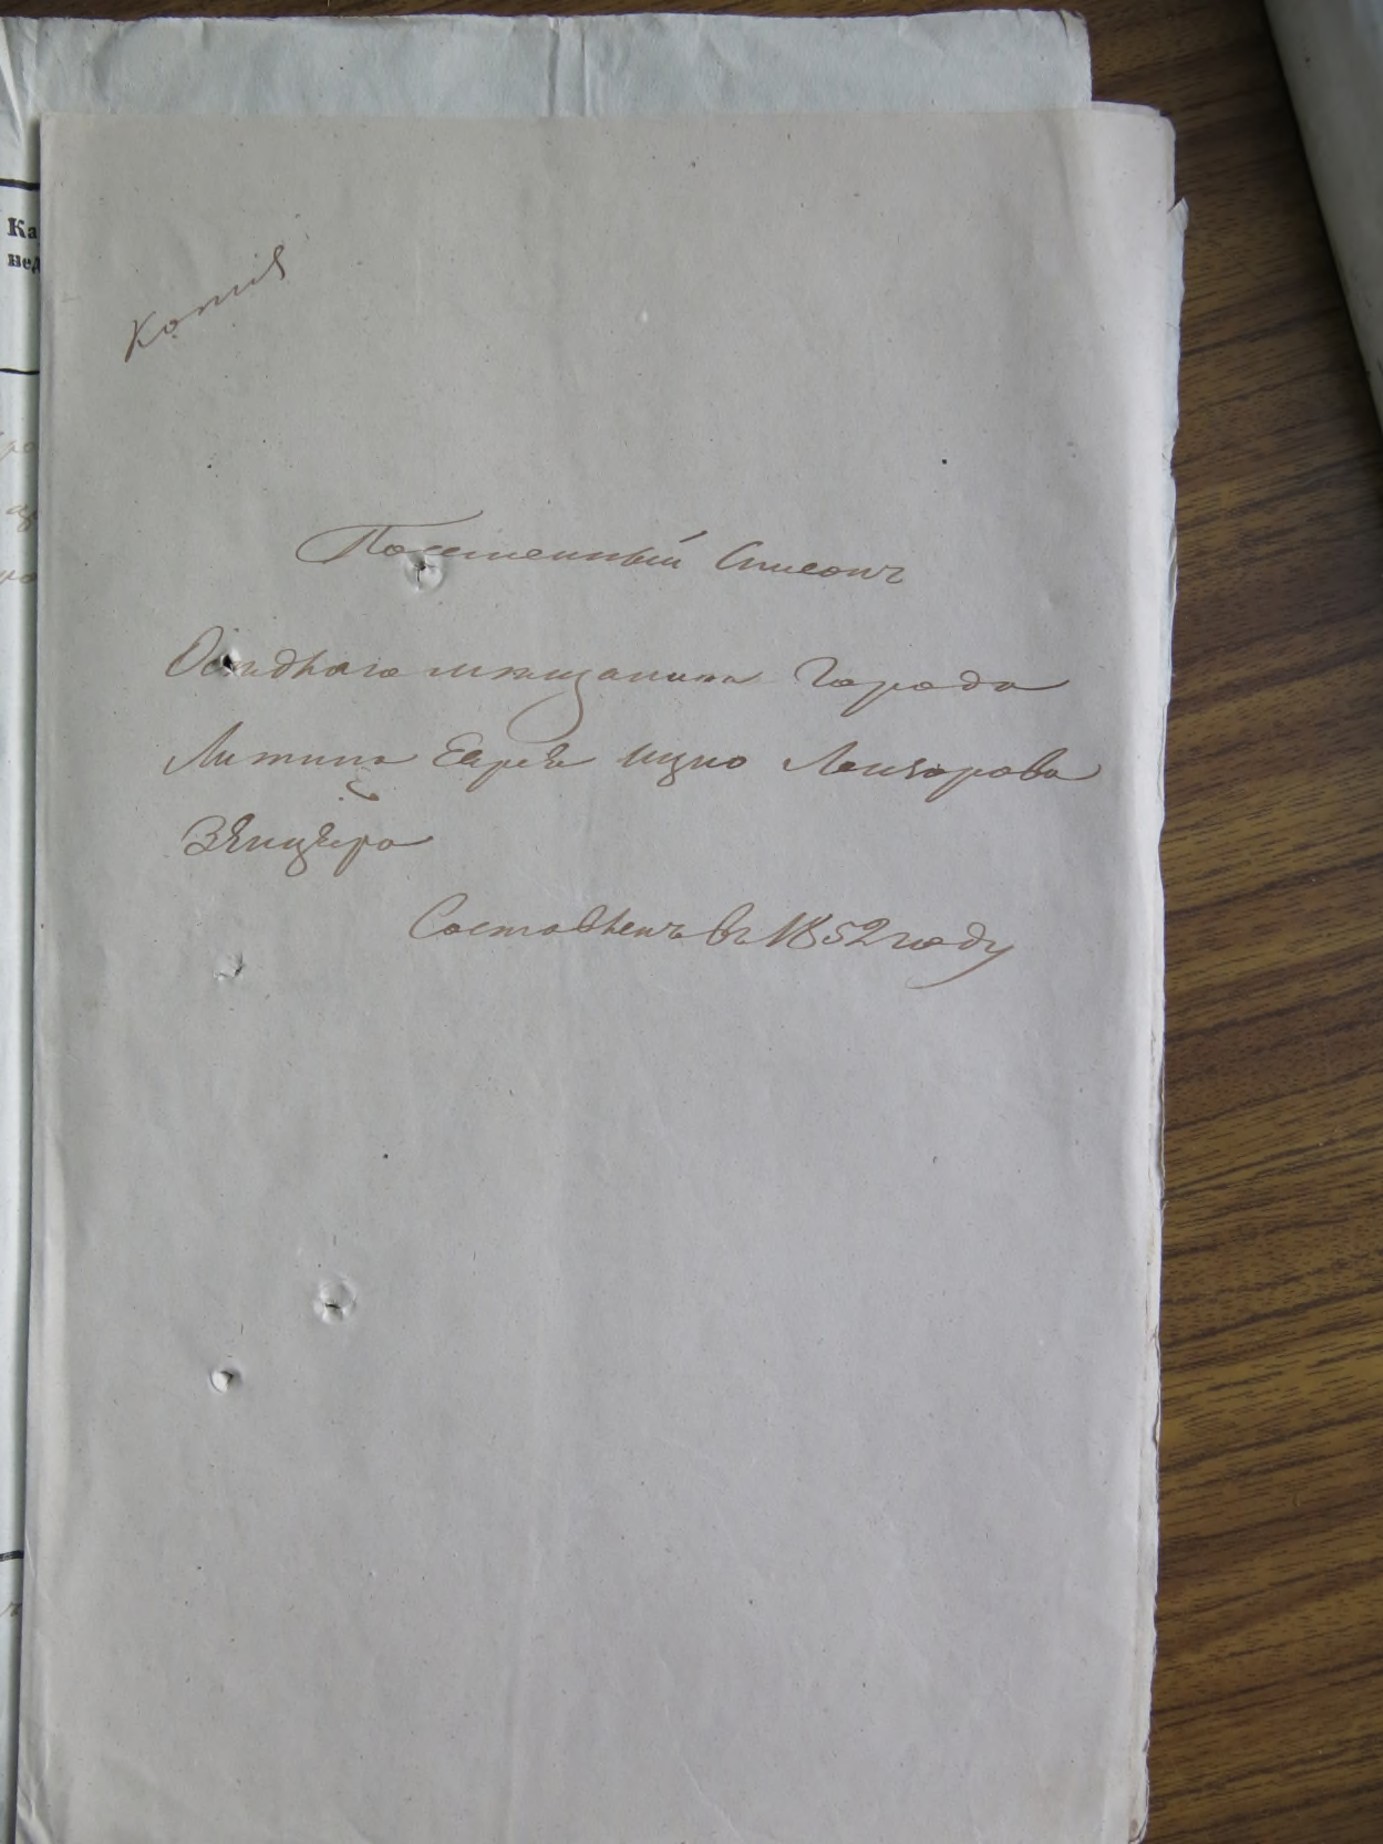 Ка
нед
Копія
Посемейный Списокъ
Осѣдлаго мѣщанина Города
Литина Еврея Ицко Лейзорова
Зейцера
Составленъ въ 1852 году